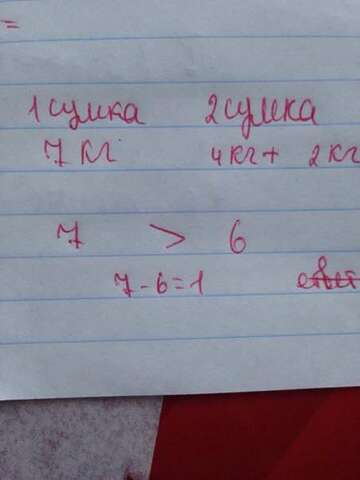 =
1 сумка 2 сумка
7 кг 4 кг + 2 кг
7 > 6
7 - 6 = 1